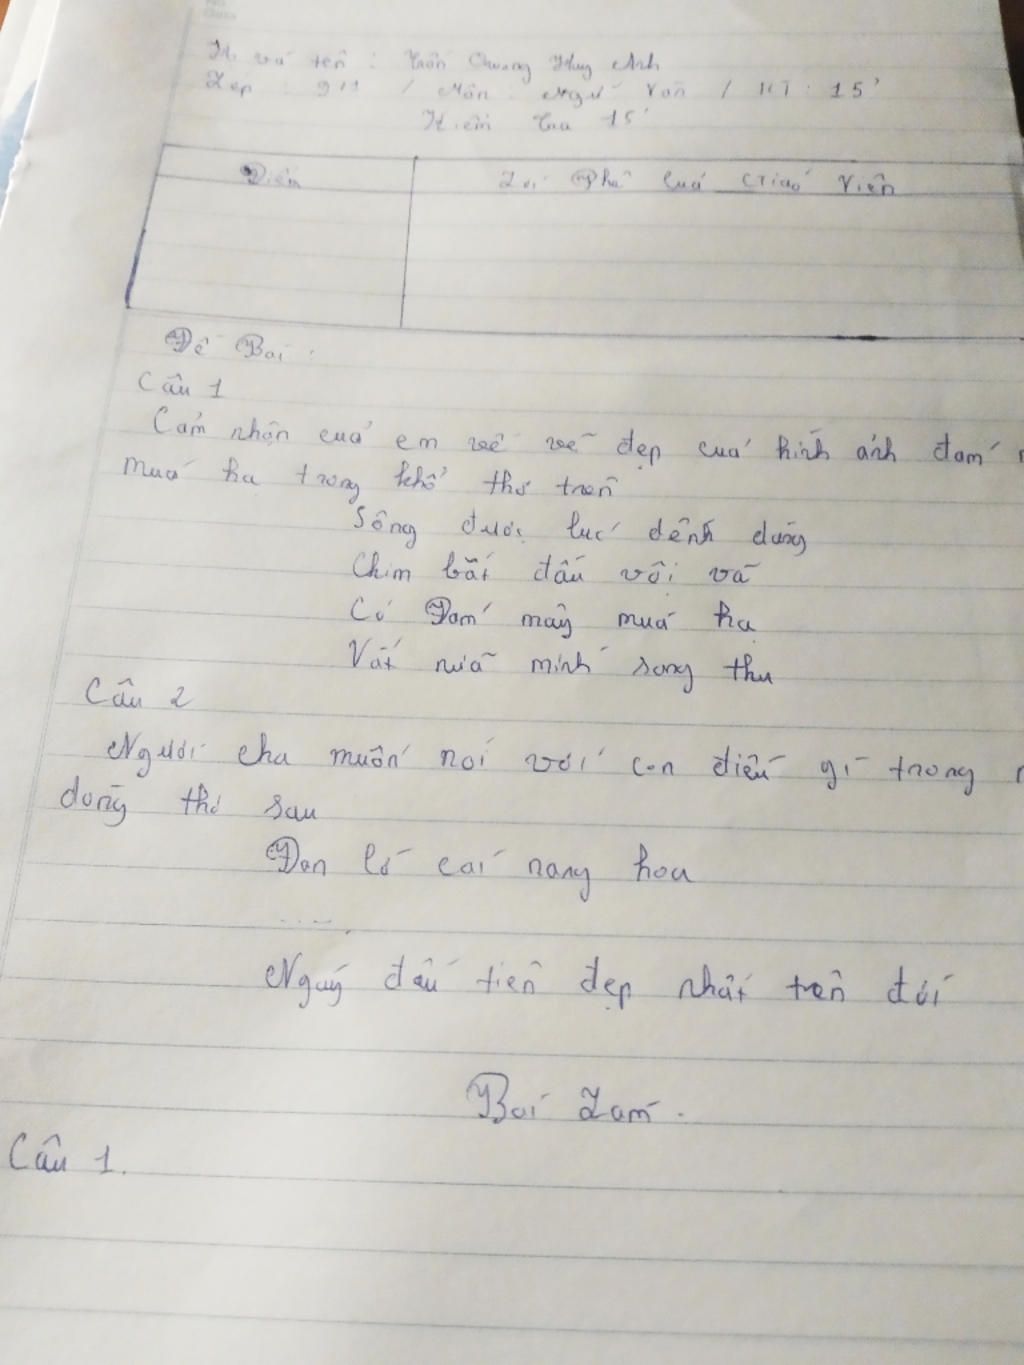 Họ và tên : Trần Quang Huy Anh
Lớp : 9/1 / Môn : Ngữ Văn / KT : 15'
Kiểm tra 15'
Điểm
Lời Phê của Giáo Viên
Đề Bài :
Câu 1
Cảm nhận của em về vẻ đẹp của hình ảnh đám
mùa hạ trong khổ thơ trên
Sông được lúc dềnh dàng
Chim bắt đầu vội vã
Có Đám mây mùa hạ
Vắt nửa mình sang thu
Câu 2
Người cha muốn nói với con điều gì trong
dòng thơ sau
Đan lờ cài nang hoa
.....
Ngày đầu tiên đẹp nhất trên đời
Bài Làm .
Câu 1.